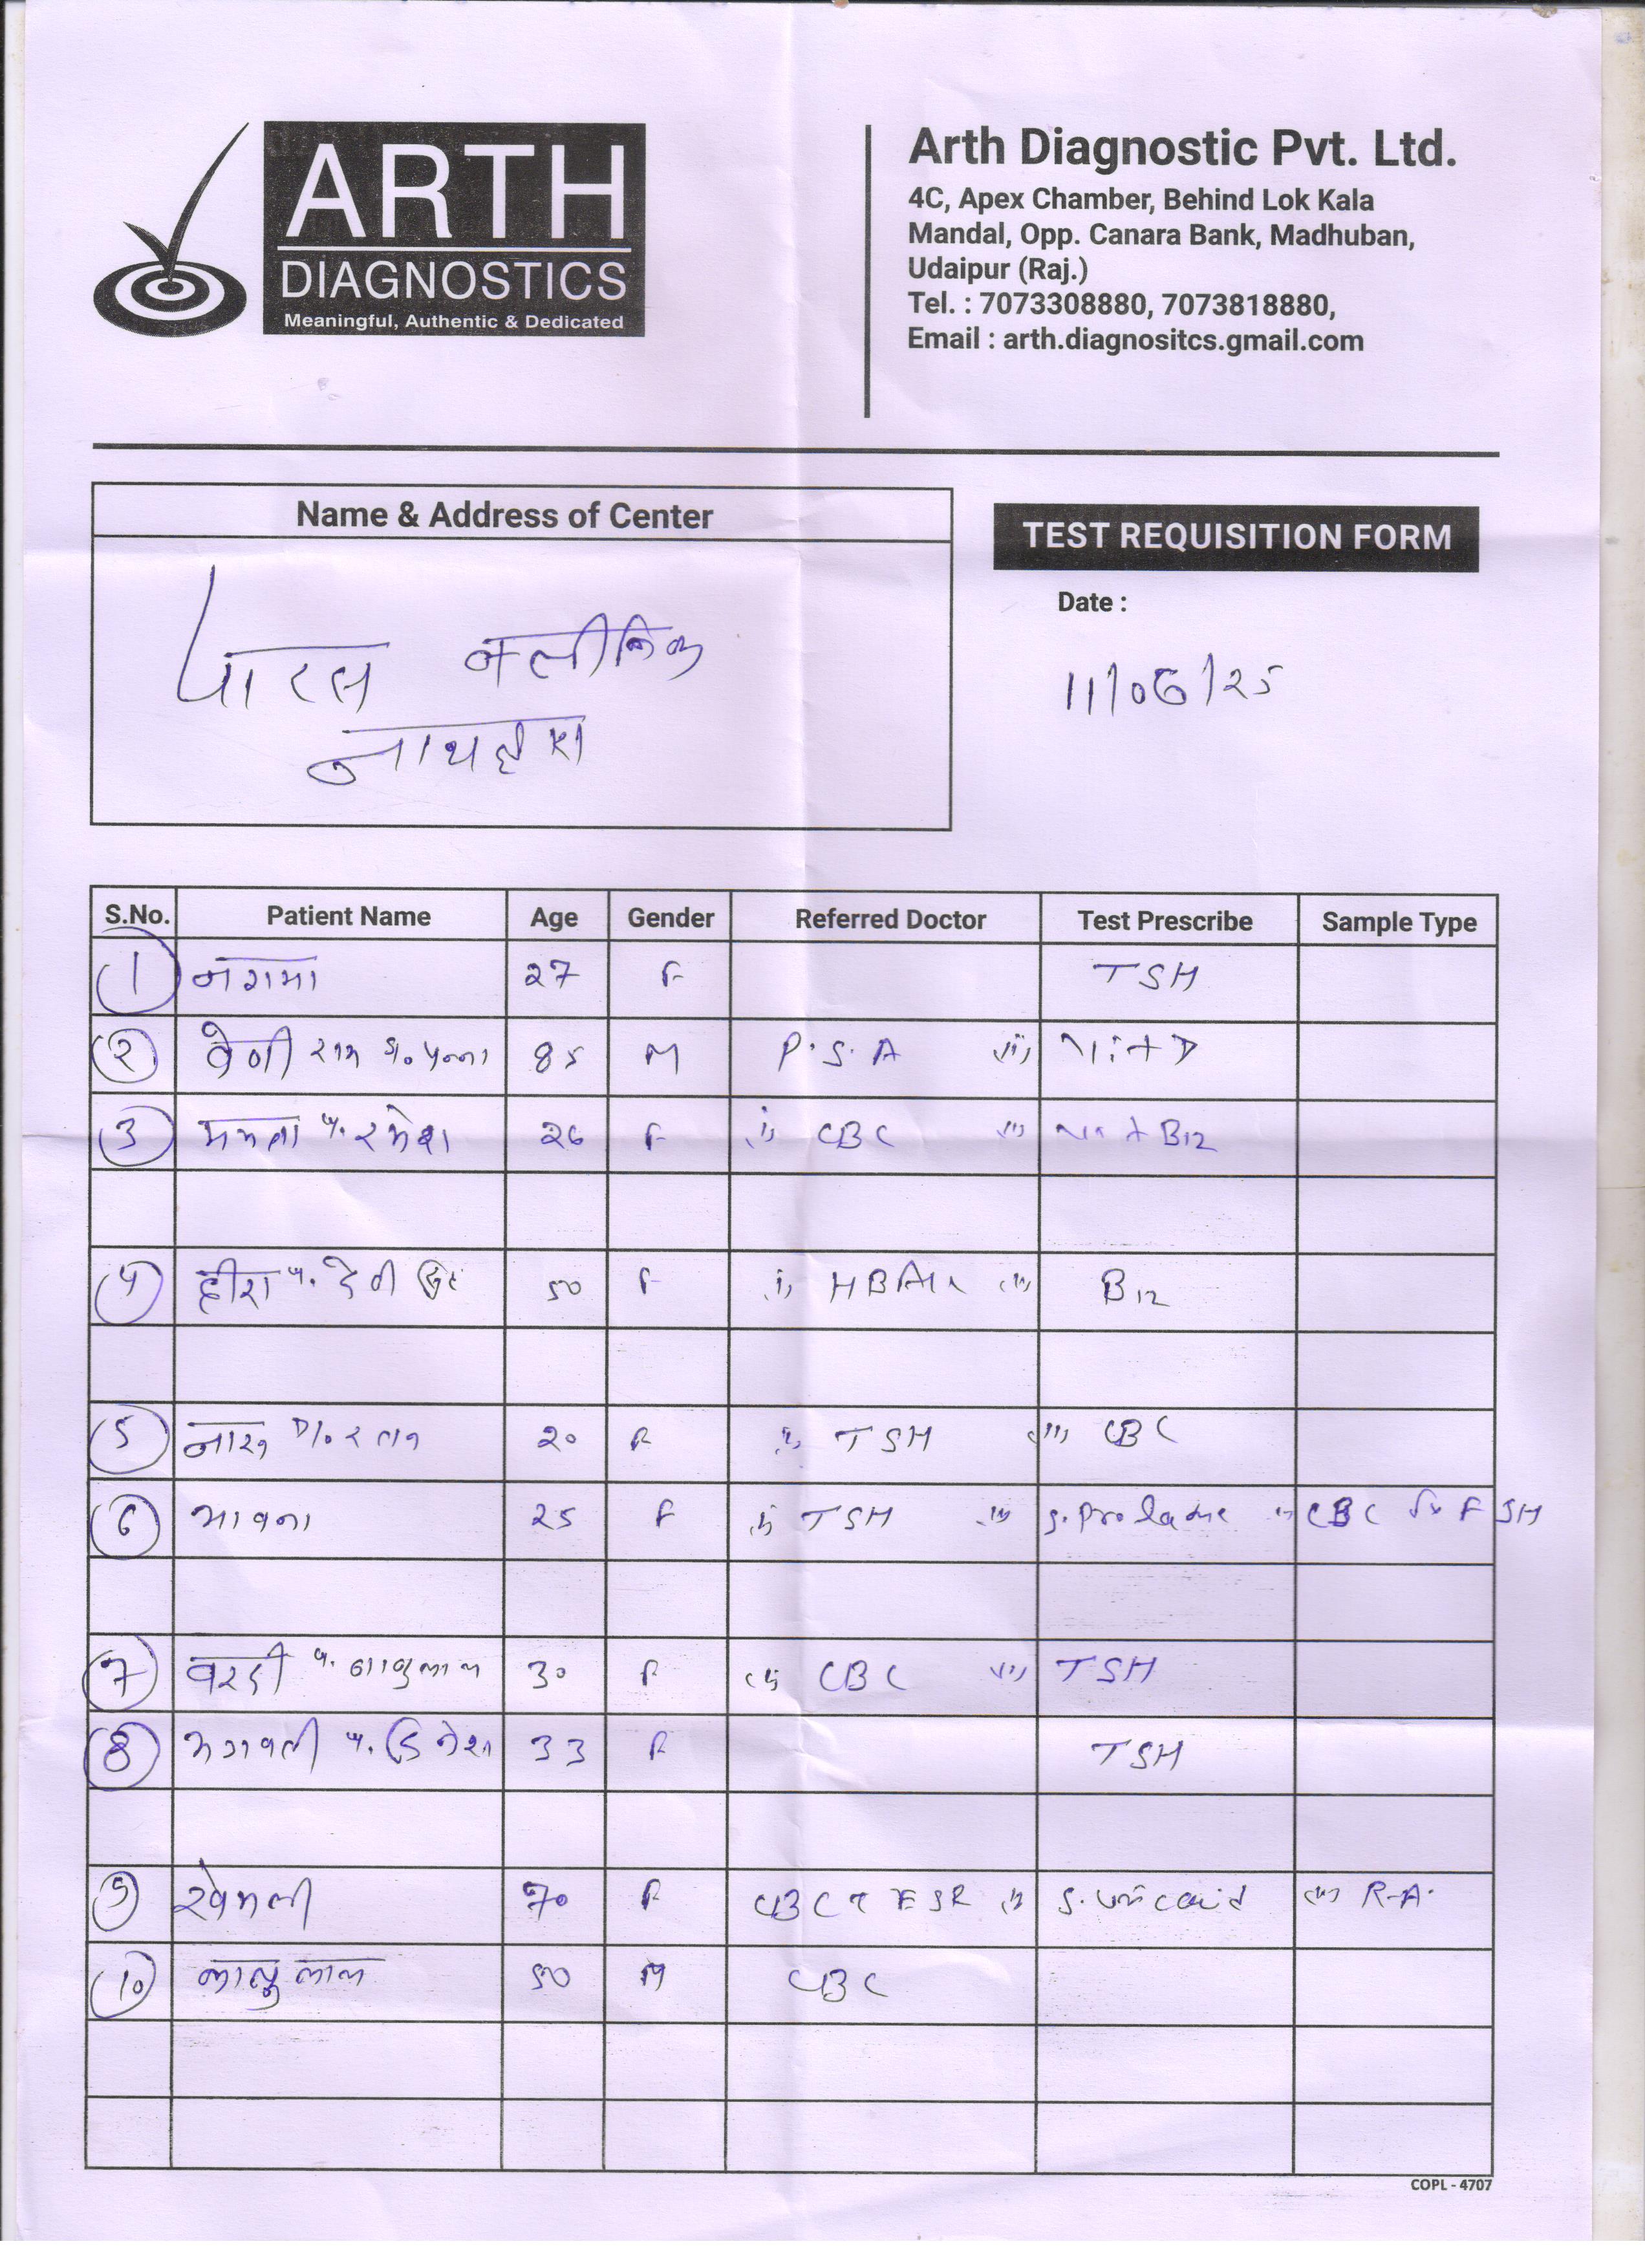 ARTH
DIAGNOSTICS
Meaningful, Authentic & Dedicated
Arth Diagnostic Pvt. Ltd.
4C, Apex Chamber, Behind Lok Kala
Mandal, Opp. Canara Bank, Madhuban,
Udaipur (Raj.)
Tel. : 7073308880, 7073818880,
Email : arth.diagnositcs.gmail.com
Name & Address of Center
पारस क्लीनिक
नाथद्वारा
TEST REQUISITION FORM
Date :
11/06/25
S.No. Patient Name Age Gender Referred Doctor Test Prescribe Sample Type
1 नगमा 27 F TSH
2 वेणी राम 85 M P.S.A (ii) Vit D
3 ममता प. रमेश 26 F (i) CBC (ii) Vit B12
4 हीरा प. देवी सिंह 50 F (i) (ii) B12
5 D/o रतन 20 F (i) TSH (ii) CBC
6 भावना 25 F (i) TSH (ii) CBC (iv) FSH
7 वरदी प. 30 F (i) CBC (ii) TSH
8 भगवती प. दिनेश 33 F TSH
9 खेमली 70 F CBC ESR (ii) (iii) R.A.
10 लाल 50 M CBC
COPL - 4707